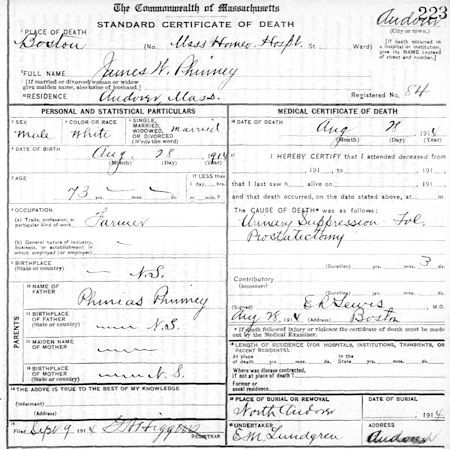 The Commonwealth of Massachusetts
STANDARD CERTIFICATE OF DEATH
Andover 223
(City or town.)
1 PLACE OF DEATH
Boston (No. Mass Homeo. Hospt. St., Ward)
[If death occurred in a hospital or institution, give its NAME instead of street and number.]
2 FULL NAME James W. Phinney
[If married or divorced woman or widow give maiden name, also name of husband.]
RESIDENCE Andover, Mass.
Registered No. 84
PERSONAL AND STATISTICAL PARTICULARS
3 SEX Male
4 COLOR OR RACE White
5 SINGLE, MARRIED, WIDOWED, OR DIVORCED (Write the word) married
6 DATE OF BIRTH
Aug 28 1914
(Month) (Day) (Year)
7 AGE
73 yrs. mos. ds.
If LESS than 1 day, hrs. or min.?
8 OCCUPATION
(a) Trade, profession, or particular kind of work Farmer
(b) General nature of industry, business, or establishment in which employed (or employer)
9 BIRTHPLACE
(State or country) N.S.
PARENTS
10 NAME OF FATHER Phineas Phinney
11 BIRTHPLACE OF FATHER (State or country) N.S.
12 MAIDEN NAME OF MOTHER
13 BIRTHPLACE OF MOTHER (State or country) N.S.
14 THE ABOVE IS TRUE TO THE BEST OF MY KNOWLEDGE
(Informant)
(Address)
15 Filed Sept 9, 1914 Higgins
REGISTRAR
MEDICAL CERTIFICATE OF DEATH
16 DATE OF DEATH
Aug 28 1914
(Month) (Day) (Year)
17 I HEREBY CERTIFY that I attended deceased from
, 191 , to , 191 ,
that I last saw h alive on , 191 ,
and that death occurred, on the date stated above, at m.
The CAUSE OF DEATH* was as follows:
Urinary Suppression - Fol.
Prostatectomy
(Duration) yrs. mos. 3 ds.
Contributory
(Secondary)
(Duration) yrs. mos. ds.
(Signed) E R Lewis, M.D.
Aug 28, 1914 (Address) Boston
* If death followed injury or violence the certificate of death must be made by the Medical Examiner.
18 LENGTH OF RESIDENCE (FOR HOSPITALS, INSTITUTIONS, TRANSIENTS, OR RECENT RESIDENTS).
At place of death yrs. mos. ds. In the State yrs. mos. ds.
Where was disease contracted, if not at place of death?
Former or usual residence
19 PLACE OF BURIAL OR REMOVAL
North Andover
DATE OF BURIAL
, 1914
20 UNDERTAKER
E.M. Lundgren
ADDRESS
Andover